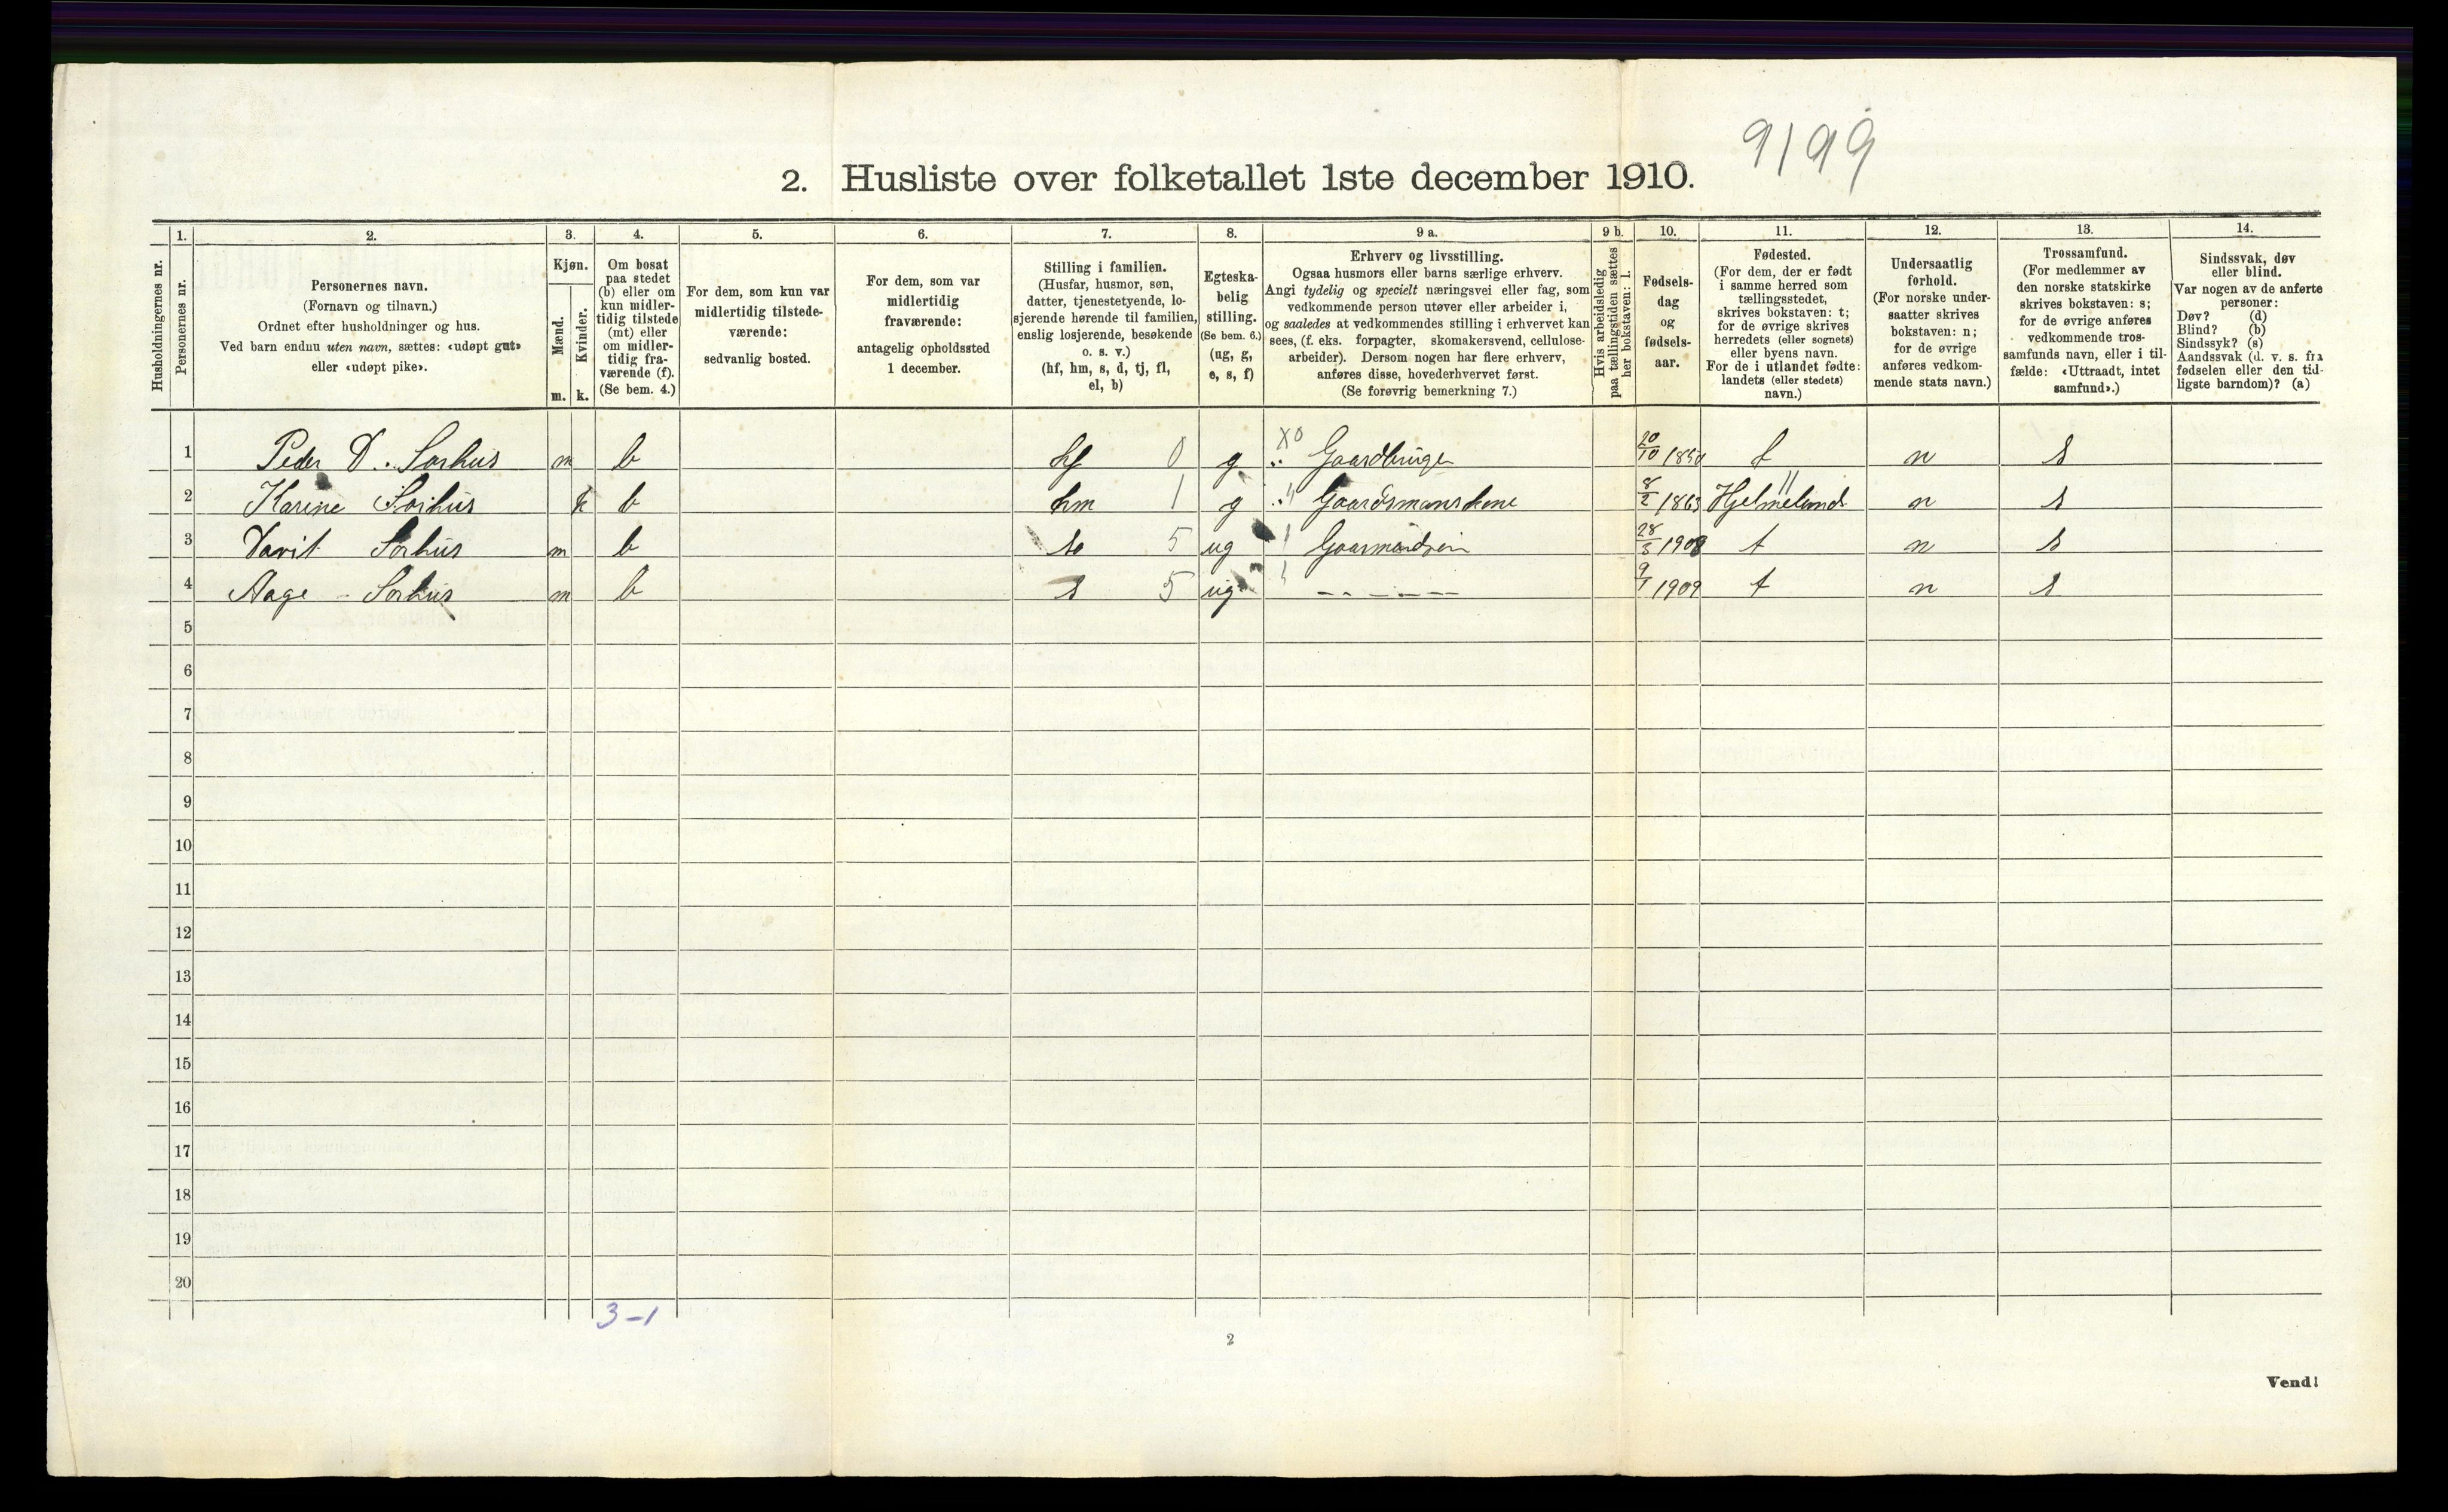 9199
2. Husliste over folketallet 1ste december 1910.
Husholdningernes nr.
1.
Personernes nr.
2.
Personernes navn.
(Fornavn og tilnavn.)
Ordnet efter husholdninger og hus.
Ved barn endnu uten navn, sættes: «udøpt gut»
eller «udøpt pike».
3.
Kjøn.
Mænd.
Kvinder.
m. k.
4.
Om bosat
paa stedet
(b) eller om
kun midler-
tidig tilstede
(mt) eller
om midler-
tidig fra-
værende (f).
(Se bem. 4.)
5.
For dem, som kun var
midlertidig tilstede-
værende:
sedvanlig bosted.
6.
For dem, som var
midlertidig
fraværende:
antagelig opholdssted
1 december.
7.
Stilling i familien.
(Husfar, husmor, søn,
datter, tjenestetyende, lo-
sjerende hørende til familien,
enslig losjerende, besøkende
o. s. v.)
(hf, hm, s, d, tj, fl,
el, b)
8.
Egteska-
belig
stilling.
(Se bem. 6.)
(ug, g,
e, s, f)
9 a.
Erhverv og livsstilling.
Ogsaa husmors eller barns særlige erhverv.
Angi tydelig og specielt næringsvei eller fag, som
vedkommende person utøver eller arbeider i,
og saaledes at vedkommendes stilling i erhvervet kan
sees, (f. eks. forpagter, skomakersvend, cellulose-
arbeider). Dersom nogen har flere erhverv,
anføres disse, hovederhvervet først.
(Se forøvrig bemerkning 7.)
9 b.
Hvis arbeidsledig
paa tællingstiden sættes
her bokstaven: l.
10.
Fødsels-
dag
og
fødsels-
aar.
11.
Fødested.
(For dem, der er født
i samme herred som
tællingsstedet,
skrives bokstaven: t;
for de øvrige skrives
herredets (eller sognets)
eller byens navn.
For de i utlandet fødte:
landets (eller stedets)
navn.)
12.
Undersaatlig
forhold.
(For norske under-
saatter skrives
bokstaven: n;
for de øvrige
anføres vedkom-
mende stats navn.)
13.
Trossamfund.
(For medlemmer av
den norske statskirke
skrives bokstaven: s;
for de øvrige anføres
vedkommende tros-
samfunds navn, eller i til-
fælde: «Uttraadt, intet
samfund».)
14.
Sindssvak, døv
eller blind.
Var nogen av de anførte
personer:
Døv? (d)
Blind? (b)
Sindssyk? (s)
Aandssvak (d. v. s. fra
fødselen eller den tid-
ligste barndom)? (a)
1 Peder D. Sorhus m b hf 0 g X0 Gaardbruger 20/10 t n s
2 Karine Sorhus k b hm 1 g Gaardsmanskone 8/2 1863 Hjelmeland n s
3 Davit Sorhus m b s 5 ug 28/8 1908 t n s
4 Aage Sorhus m b s 5 ug — 9/1 1909 t n s
5
6
7
8
9
10
11
12
13
14
15
16
17
18
19
20
3-1
2
Vend!